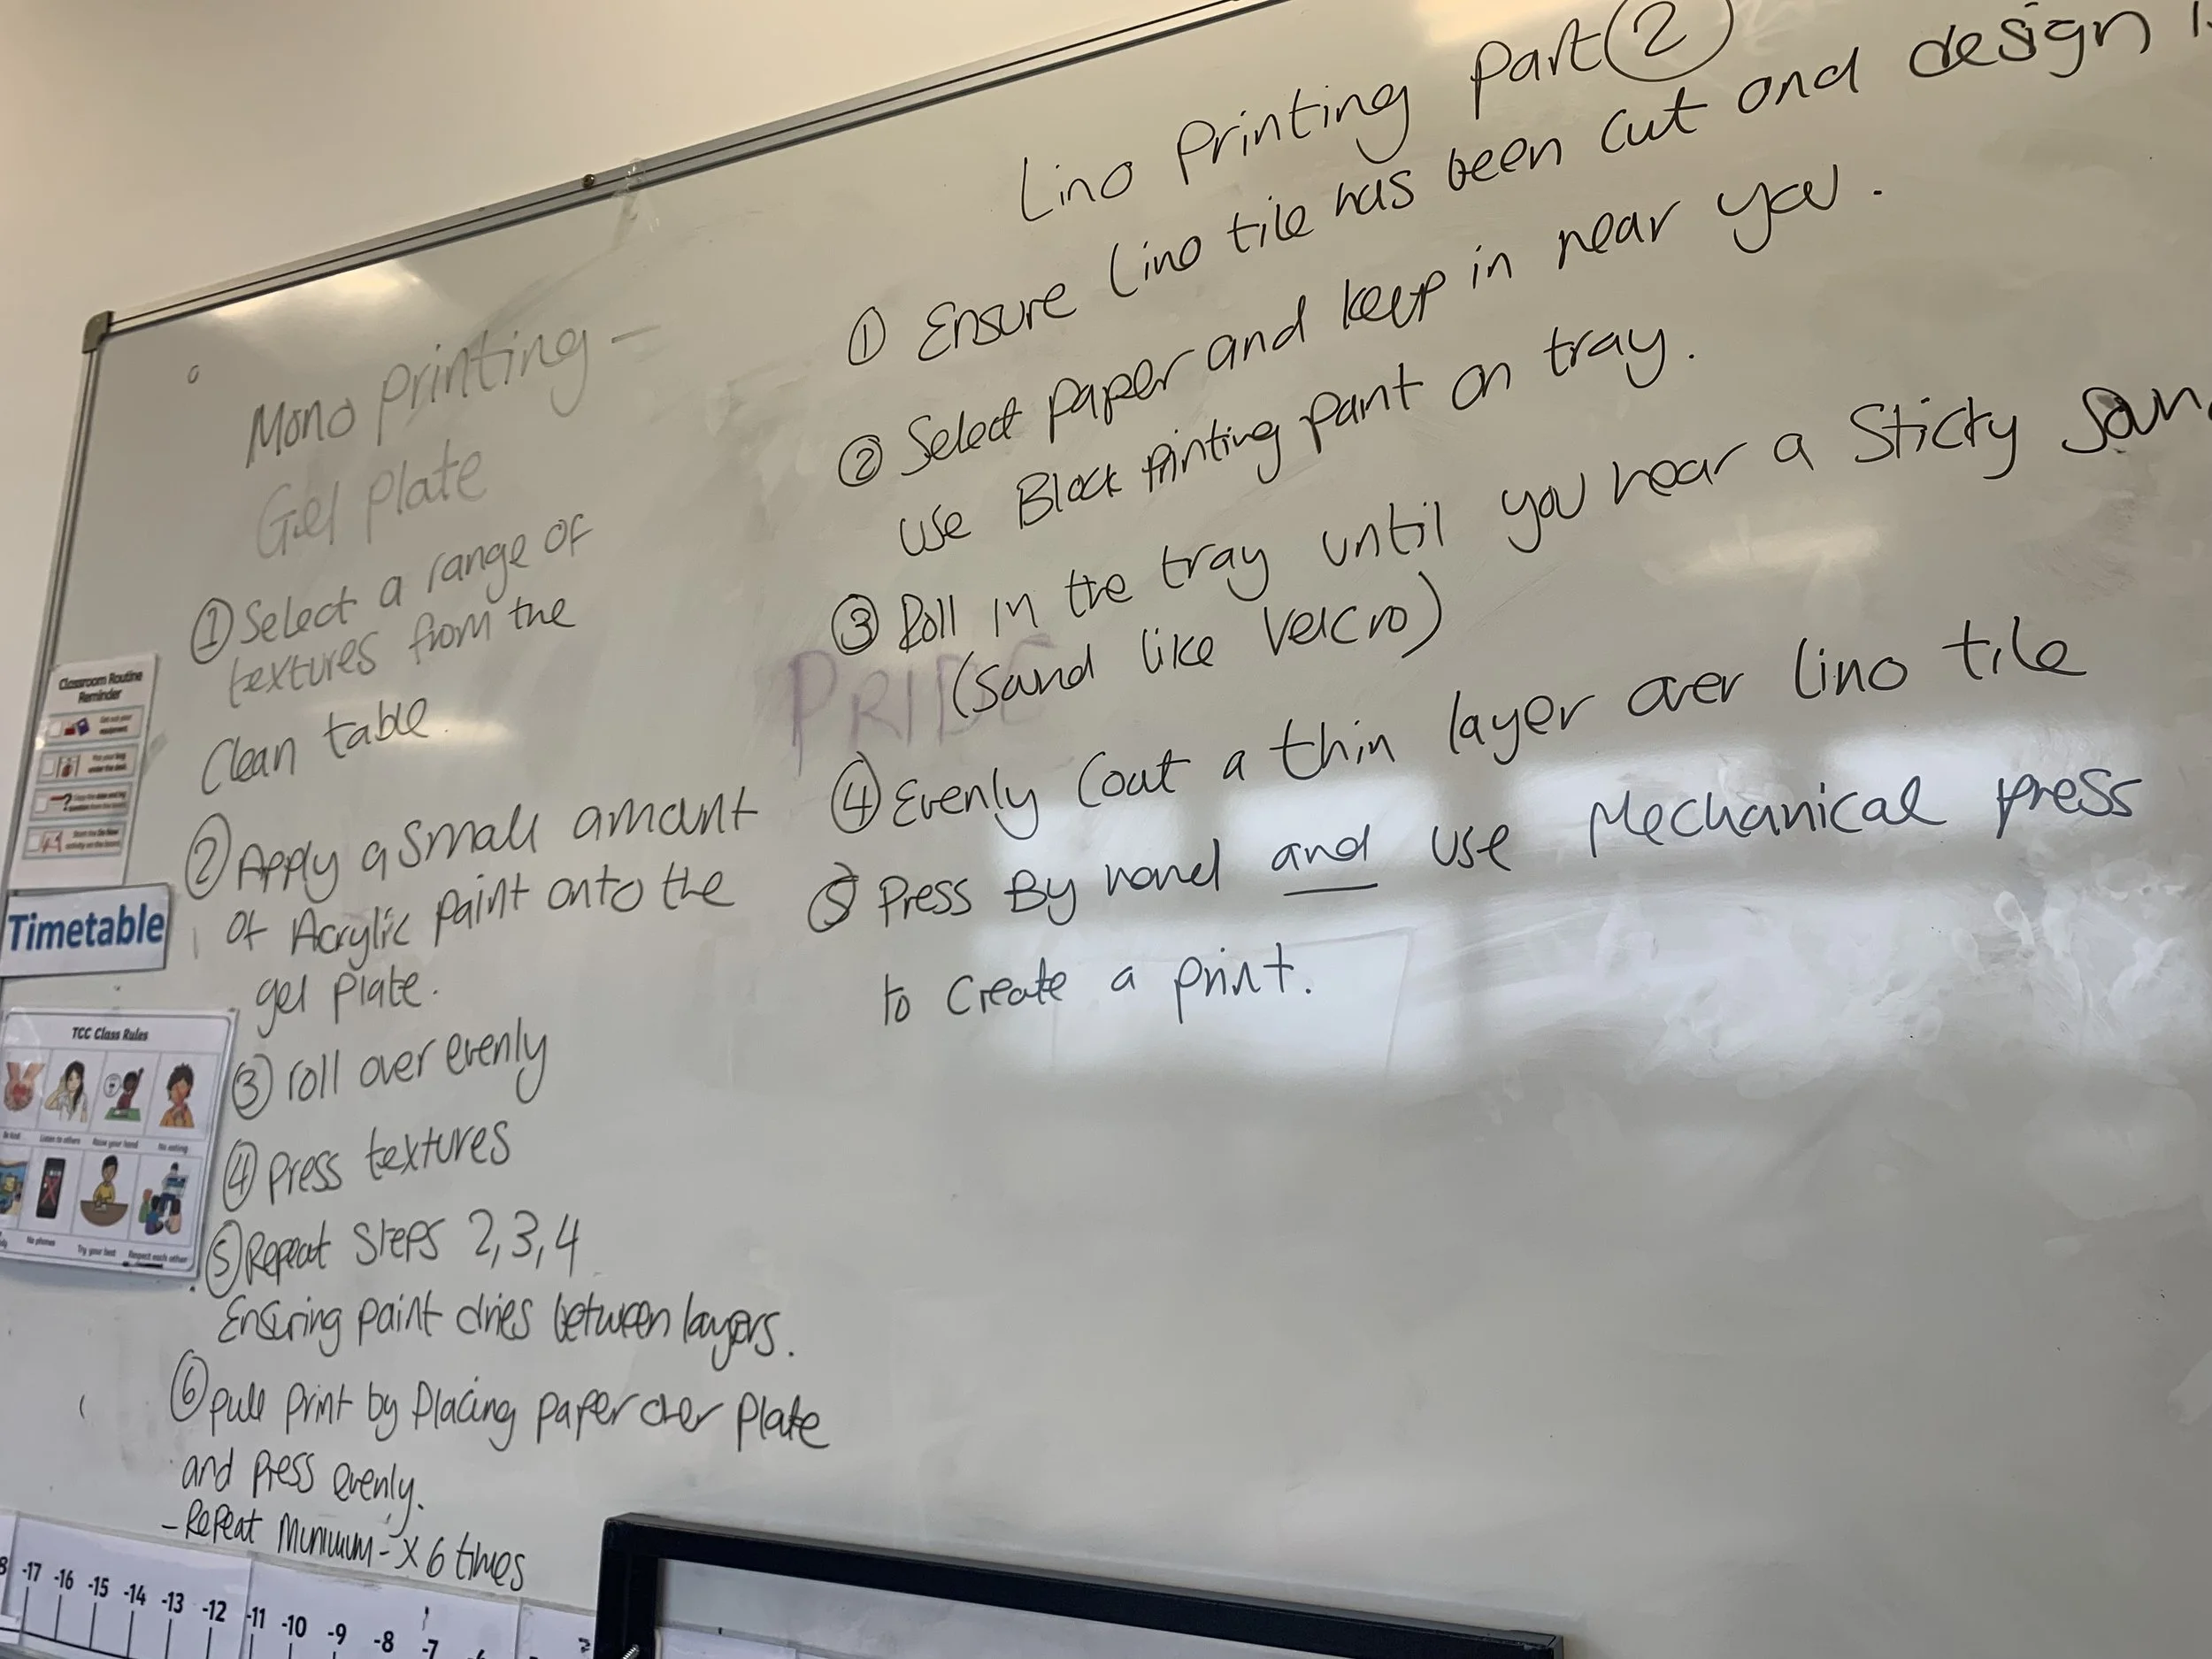 Mono printing -
Gel plate
① Select a range of
textures from the
Clean table.
② Apply a small amount
of Acrylic paint onto the
gel plate.
③ roll over evenly
④ press textures
⑤ Repeat Steps 2, 3, 4
Ensuring paint dries between layers.
⑥ pull print by placing paper over plate
and press evenly.
- Repeat Minimum - x 6 times
Lino printing part ②
① Ensure Lino tile has been cut and design
② Select paper and keep in near you.
use Block printing paint on tray.
③ Roll in the tray until you hear a Sticky
(Sound like Velcro)
PRIDE
④ Evenly Coat a thin layer over lino tile
⑤ Press By hand and use Mechanical press
to create a print.
Classroom Routine
Reminder
Timetable
TCC Class Rules
Listen to others Raise your hand No eating
No phones Try your best Respect each other
-17 -16 -15 -14 -13 -12 -11 -10 -9 -8 -7